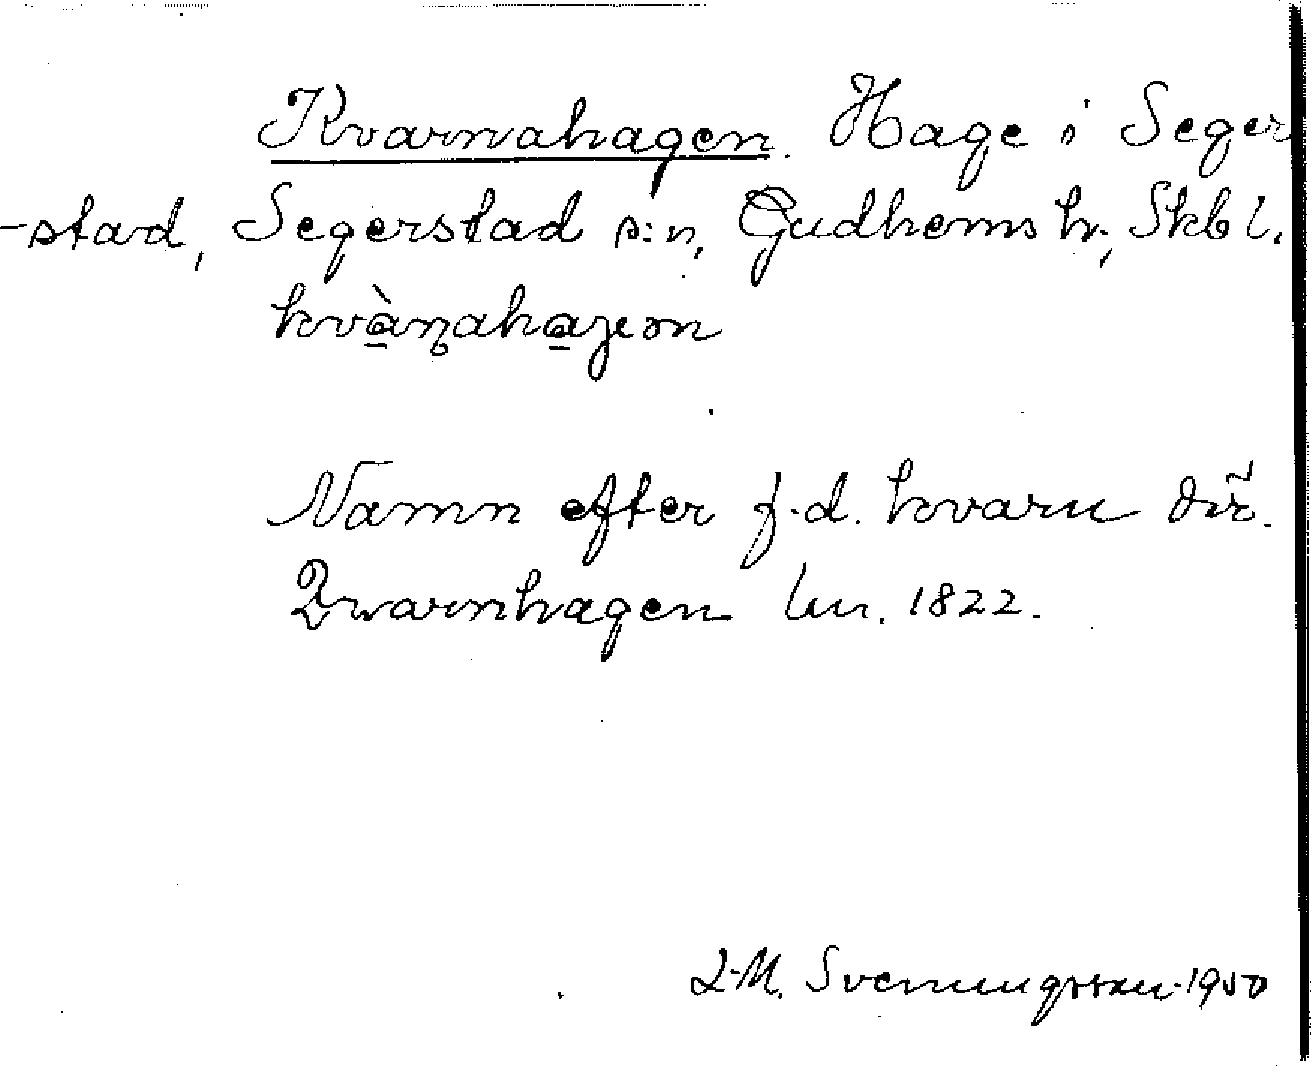 Kvarnahagen. Hage i Seger
-stad, Segerstad s:n, Gudhems hr, Skbl.
kvànahagen
Namn efter f.d. kvarn där.
Qvarnhagen lm. 1822.
L-M. Svenungsson 1950